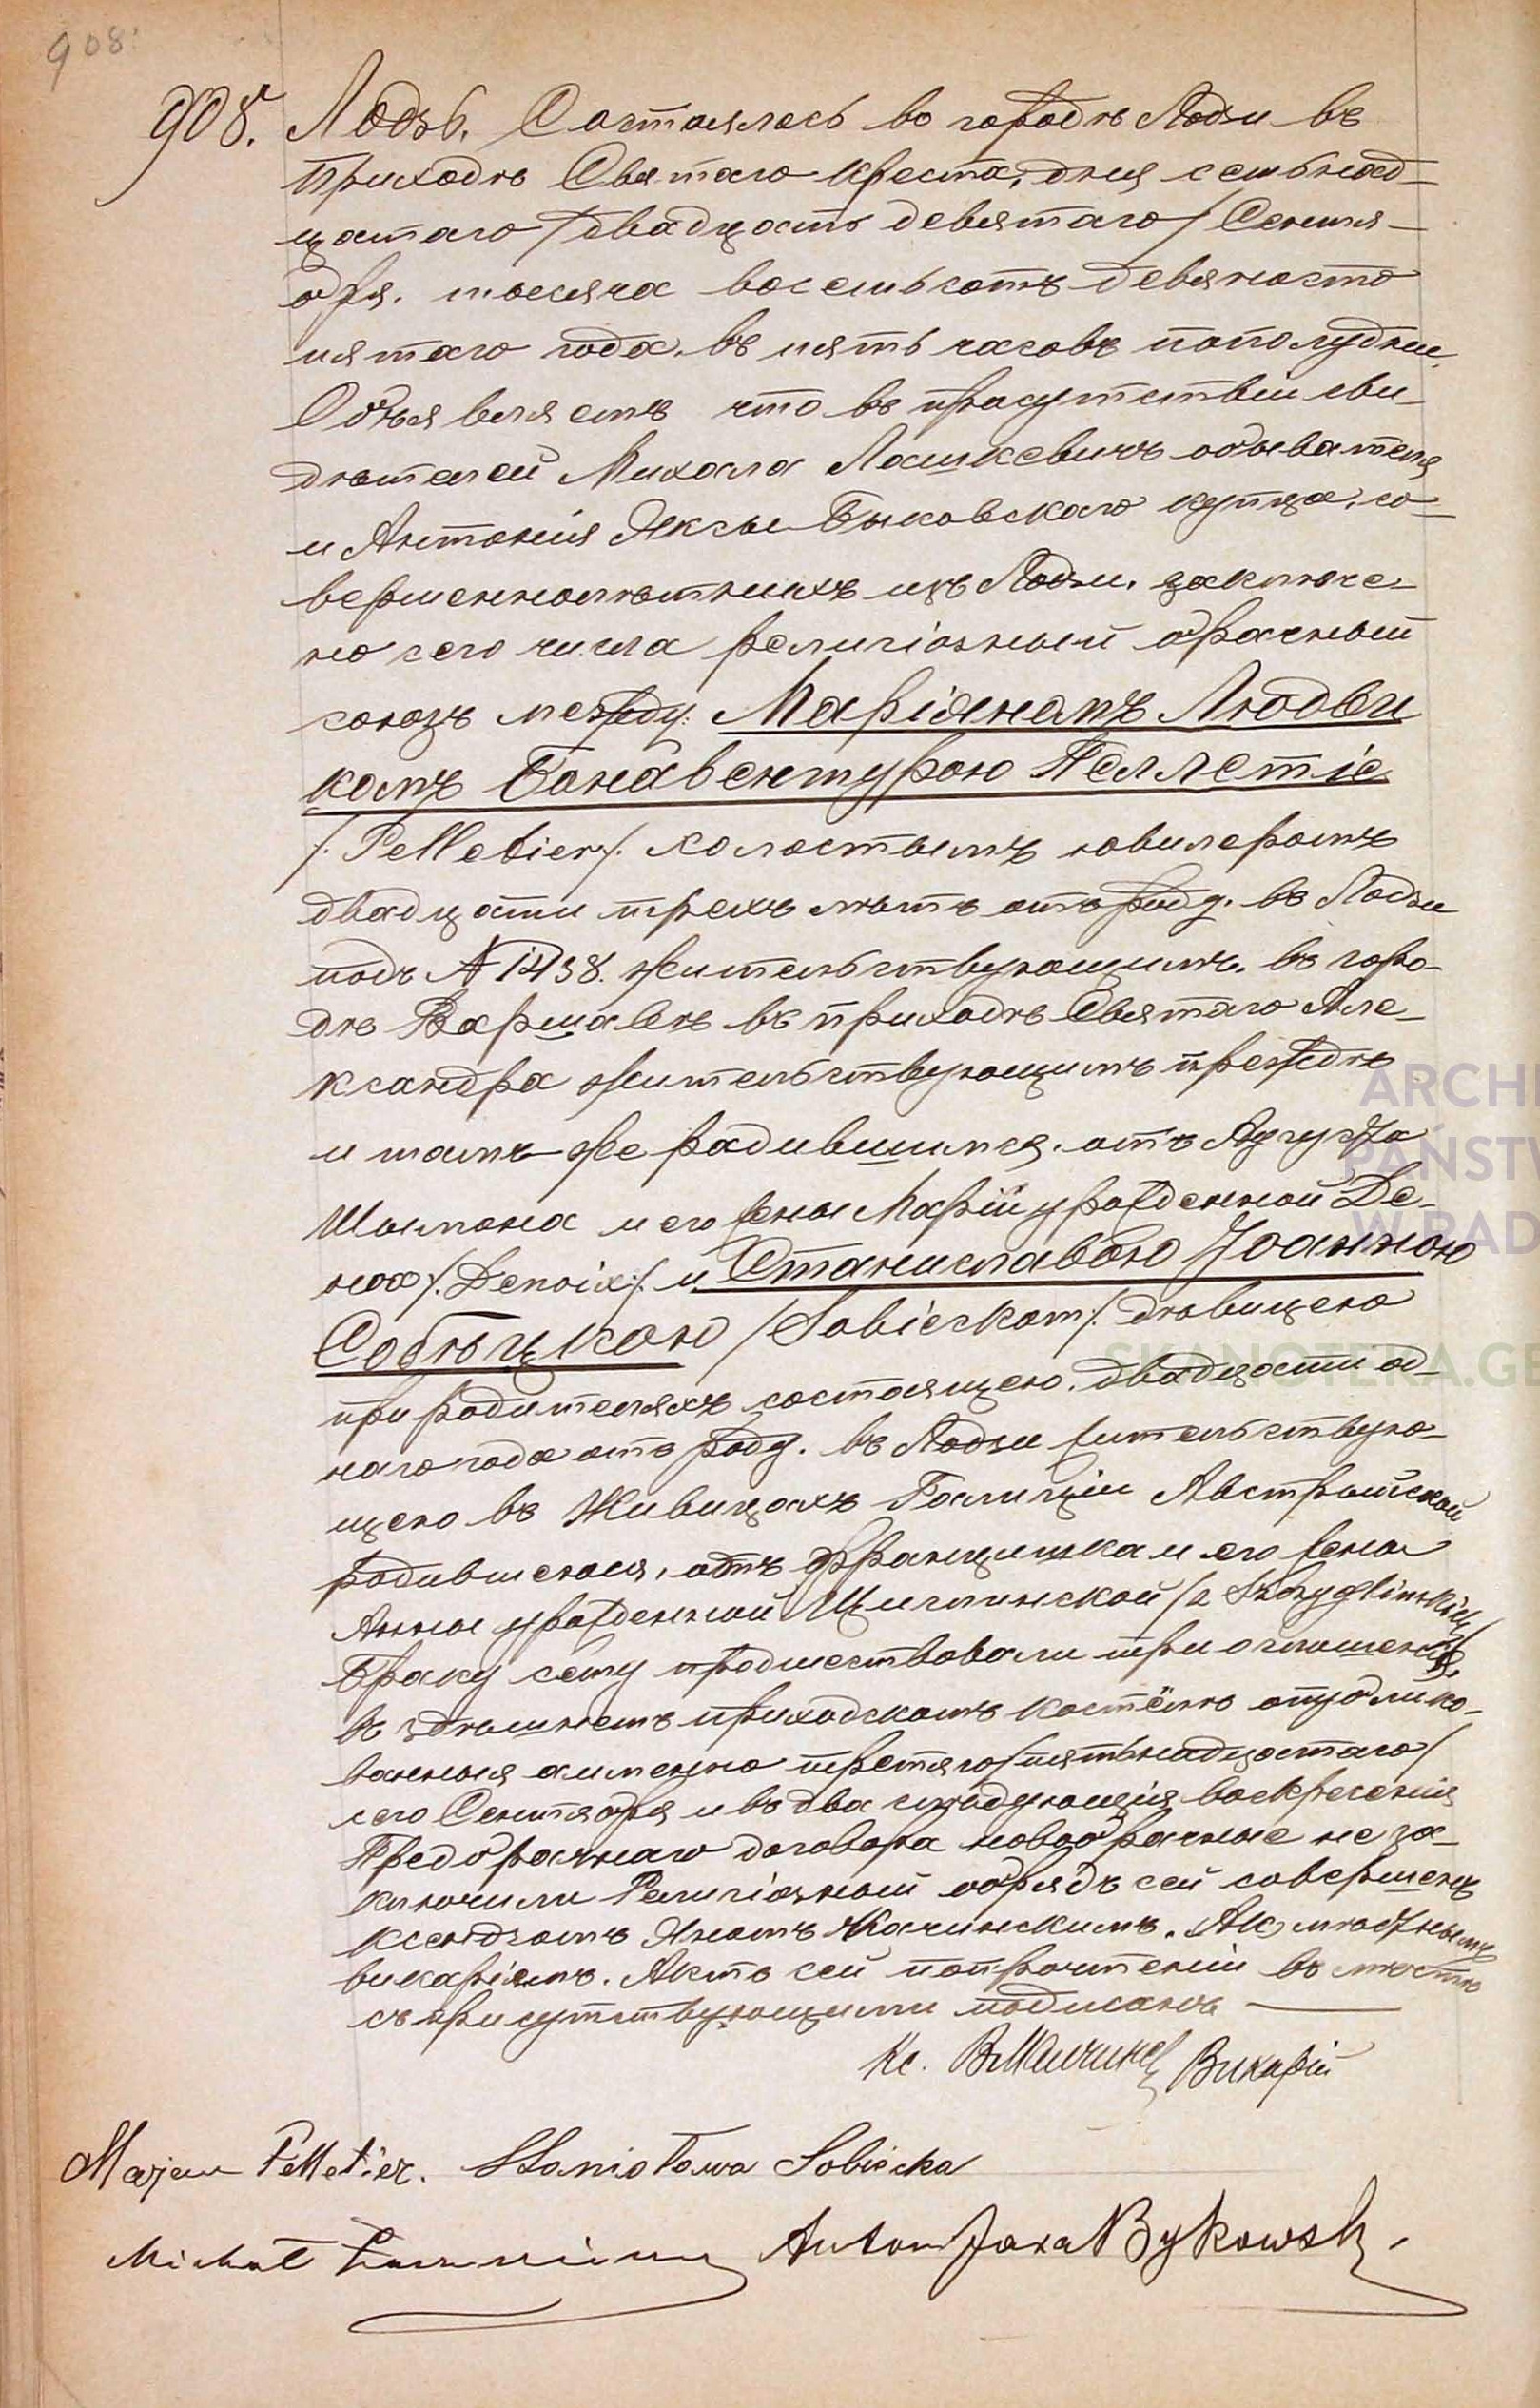 908.
908. Лодзь. Состоялось во городѣ Лодзи въ
приходѣ Святаго Креста, дня семьнад-
цатаго /двадцать девятаго/ Сентя-
бря, тысяча восемьсотъ девяносто
пятаго года, въ пять часовъ пополудни.
Объявляемъ что въ присутствіи сви-
дѣтелей Михала Лашкевичъ обывателя
и Антонія Яксы Быковскаго купца, со-
вершеннолѣтнихъ изъ Лодзи, заключе-
но сего числа религіозный брачный
союзъ между: Маріяномъ Людви
комъ Бонавентурою Пеллетіе
/: Pelletier :/ холостымъ ювилеромъ
двадцати трехъ лѣтъ отъ роду, въ Лодзи
подъ № 1438. жительствующимъ, въ горо-
дѣ Варшавѣ въ приходѣ Святаго Але-
ксандра жительствующимъ прежде
и тамъ-же родившимся, отъ Августа
Шымона и его жены Маріи урожденной Де-
ноа /: Denoix :/ и Станиславою Іоанною
Собѣцкою /Sobieckom/: дѣвицею
при родителяхъ состоящею, двадцати од-
наго года отъ роду, въ Лодзи жительствую-
щею въ Живицахъ Галиціи Австрыйской
родившеюся, отъ Францишка и его жены
Анны урожденной Щиглинской /z Szczyglinskich/
Браку сему предшествовали три оглашенія,
въ здѣшнемъ приходскомъ костёлѣ опублико-
ванныя а именно третяго/пятьнадцатаго/
сего Сентября и въ два слѣдующія воскресенія
Предбрачнаго договора новобрачные не за-
ключили Религіозный обрядъ сей совершенъ
ксендзомъ Яномъ Качинскимъ. мѣстнымъ
викаріемъ. Актъ сей по прочтеніи въ мѣстѣ
съ присутствующими подписанъ
Кс. Викарій
Marjan Pelletier. Stanisława Sobiecka
Michał Antoni Jaxa Bykowski
ARCHI
PAŃSTW
W RAD
SKANOTEKA.GE